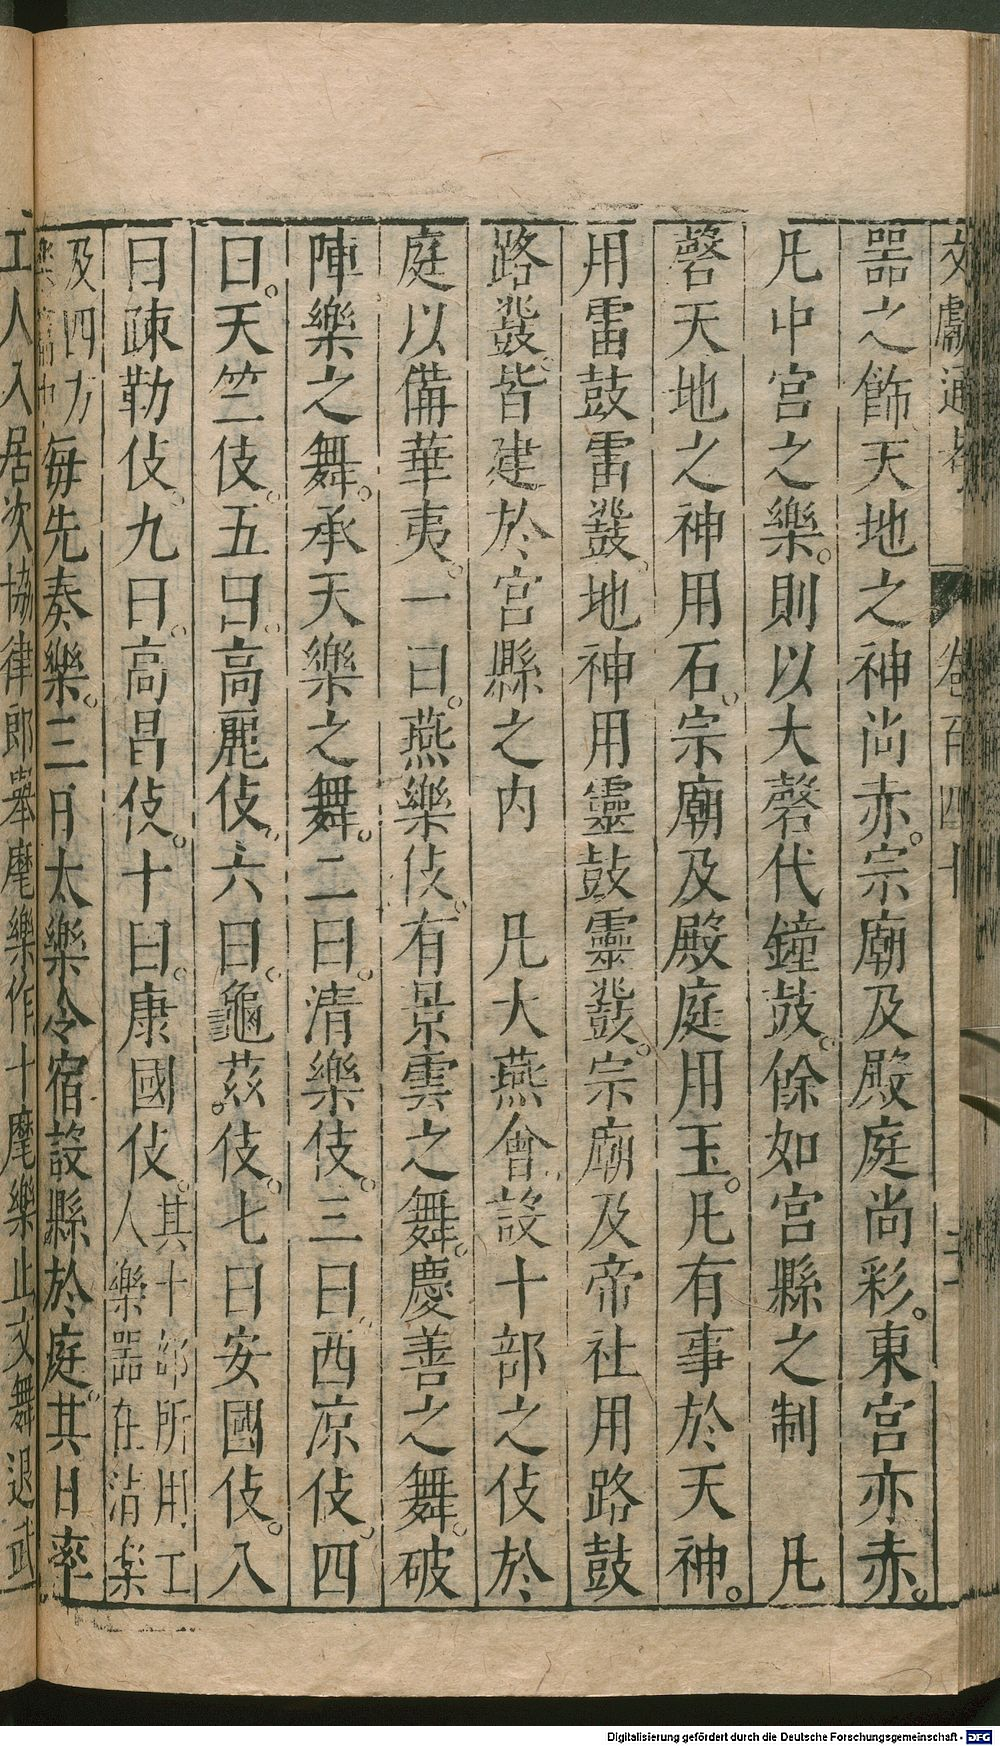 文獻通考 卷百四十
器之飾天地之神尚赤。宗廟及殿庭尚彩。東宮亦赤。
凡中宮之樂。則以大磬代鐘鼓。餘如宮縣之制 凡
磬天地之神用石。宗廟及殿庭用玉。凡有事於天神。
用雷鼓雷鼗。地神用靈鼓靈鼗。宗廟及帝社用路鼓
路鼗。皆建於宮縣之內 凡大燕會設十部之伎於
庭以備華夷。一曰。燕樂伎。有景雲之舞。慶善之舞。破
陣樂之舞。承天樂之舞。二曰。清樂伎。三曰。西凉伎。四
曰。天竺伎。五曰。高麗伎。六曰。龜茲伎。七曰安國伎。八
曰疎勒伎。九曰。高昌伎。十曰。康國伎。其十部所用工人樂器在清樂
及四方樂篇中每先奏樂。三日太樂令宿設縣於庭。其日率
工人入居次協律郎舉麾樂作十麾樂止文舞退武
Digitalisierung gefördert durch die Deutsche Forschungsgemeinschaft - DFG